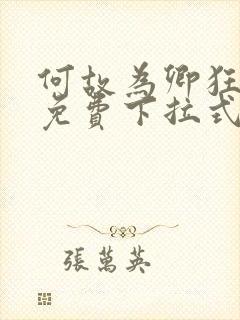 何故為卿狂
免費下拉式
張萬英